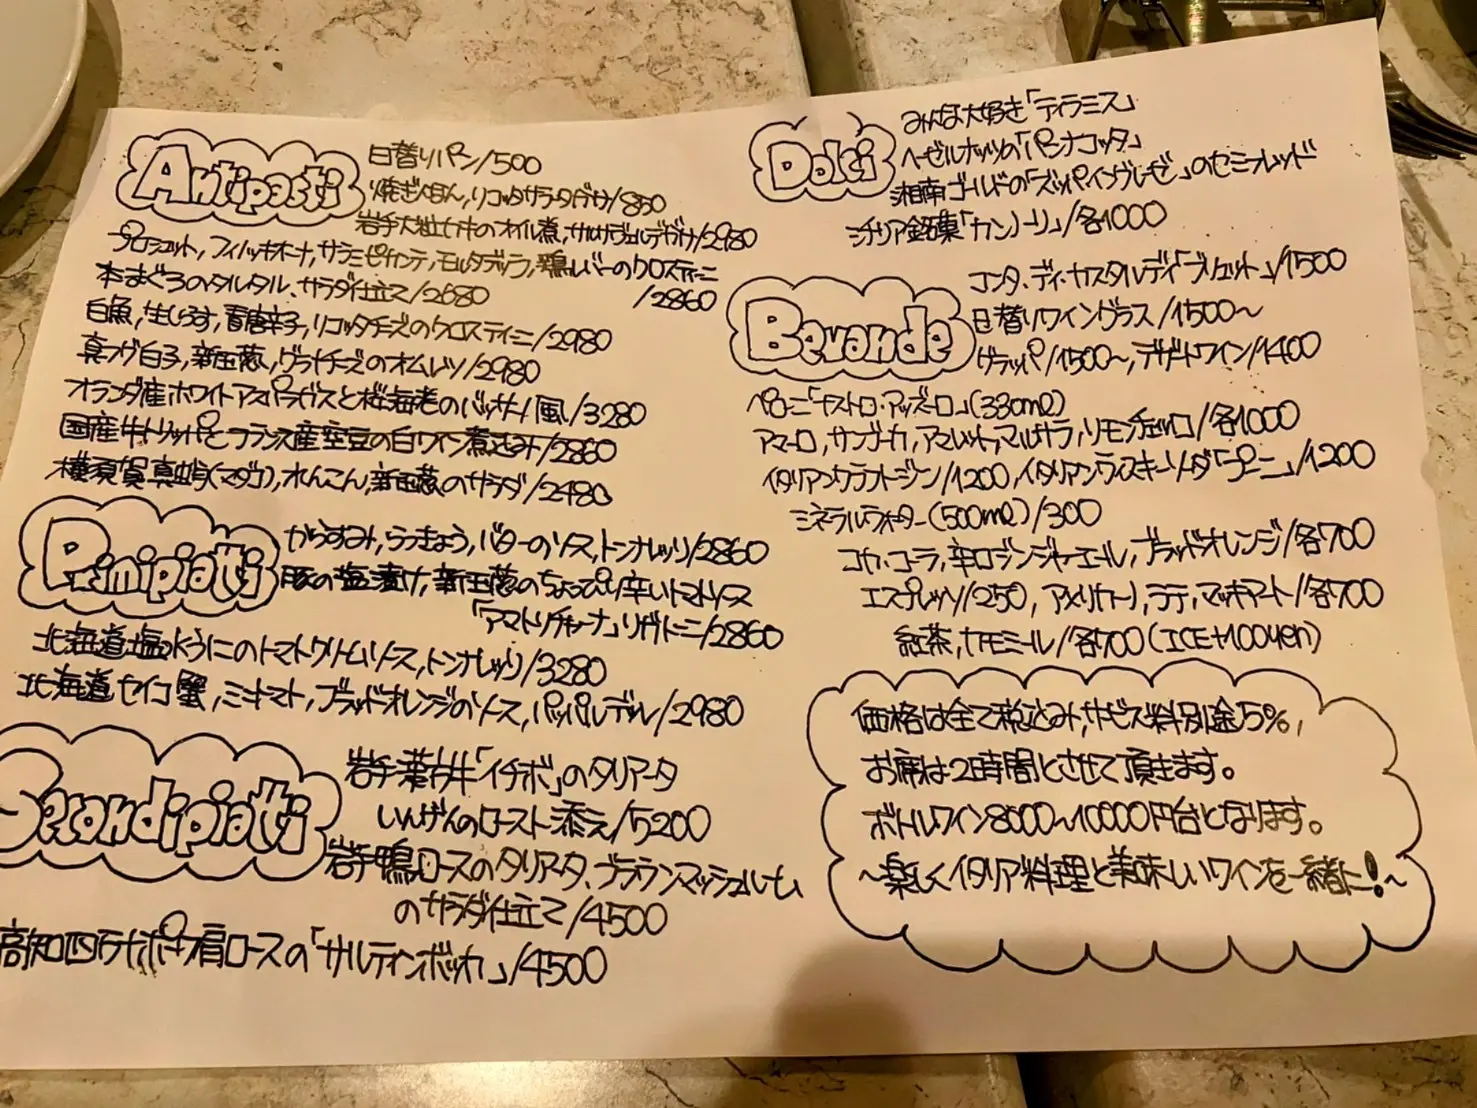 Antipasti
日替りパン/500
焼ぎんなん,リコッタサラータがけ/850
岩手大粒カキのオイル煮,サルサヴェルデがけ/2980
プロシュット,フィノッキオーナ,サラミピカンテ,モルタデッラ,鶏レバーのクロスティーニ
/2860
本まぐろのタルタル、サラダ仕立て/2680
白魚,生しらす,青唐辛子,リコッタチーズのクロスティーニ/2980
真フグ白子,新玉葱,グラナチーズのオムレツ/2980
オランダ産ホワイトアスパラガスと桜海老のバッサーノ風/3280
国産牛トリッパとフランス産空豆の白ワイン煮込み/2860
横須賀真蛸(マダコ),れんこん,新玉葱のサラダ/2480
Primipiatti
からすみ,らっきょう,バターのソース,トンナレッリ/2860
豚の塩漬け,新玉葱のちょっぴり辛いトマトソース
「アマトリチャーナ」リガトーニ/2860
北海道塩水うにのトマトクリームソース,トンナレッリ/3280
北海道セイコ蟹,ミニトマト,ブラッドオレンジのソース,パッパルデッレ/2980
Secondipiatti
岩手短角牛「イチボ」のタリアータ
いんげんのロースト添え/5200
岩手鴨ロースのタリアータ、ブラウンマッシュルーム
のサラダ仕立て/4500
高知四万十ポーク肩ロースの「サルティンボッカ」/4500
Dolci
みんな大好き「ティラミス」
ヘーゼルナッツの「パンナコッタ」
湘南ゴールドの「ズッパイングレーゼ」のセミフレッド
シチリア銘菓「カンノーリ」/各1000
Bevande
コンタ・ディ・カスタルディ「ブリュット」/1500
日替りワイングラス/1500〜
グラッパ/1500〜,デザートワイン/1400
ペローニ「ナストロ・アッズーロ」(330ml)
アマーロ,サンブーカ,アマレット,マルサラ,リモンチェッロ/各1000
イタリアンクラフトジン/1200,イタリアンウィスキーソーダ「プーニ」/1200
ミネラルウォーター(500ml)/300
コカ・コーラ,辛口ジンジャーエール,ブラッドオレンジ/各700
エスプレッソ/250,アメリカーノ,ラテ,マッキアート/各700
紅茶,カモミール/各700(ICE+100yen)
価格は全て税込み,サービス料別途5%,
お席は2時間とさせて頂きます。
ボトルワイン8000〜10000円台となります。
〜楽しくイタリア料理と美味しいワインを一緒に!〜